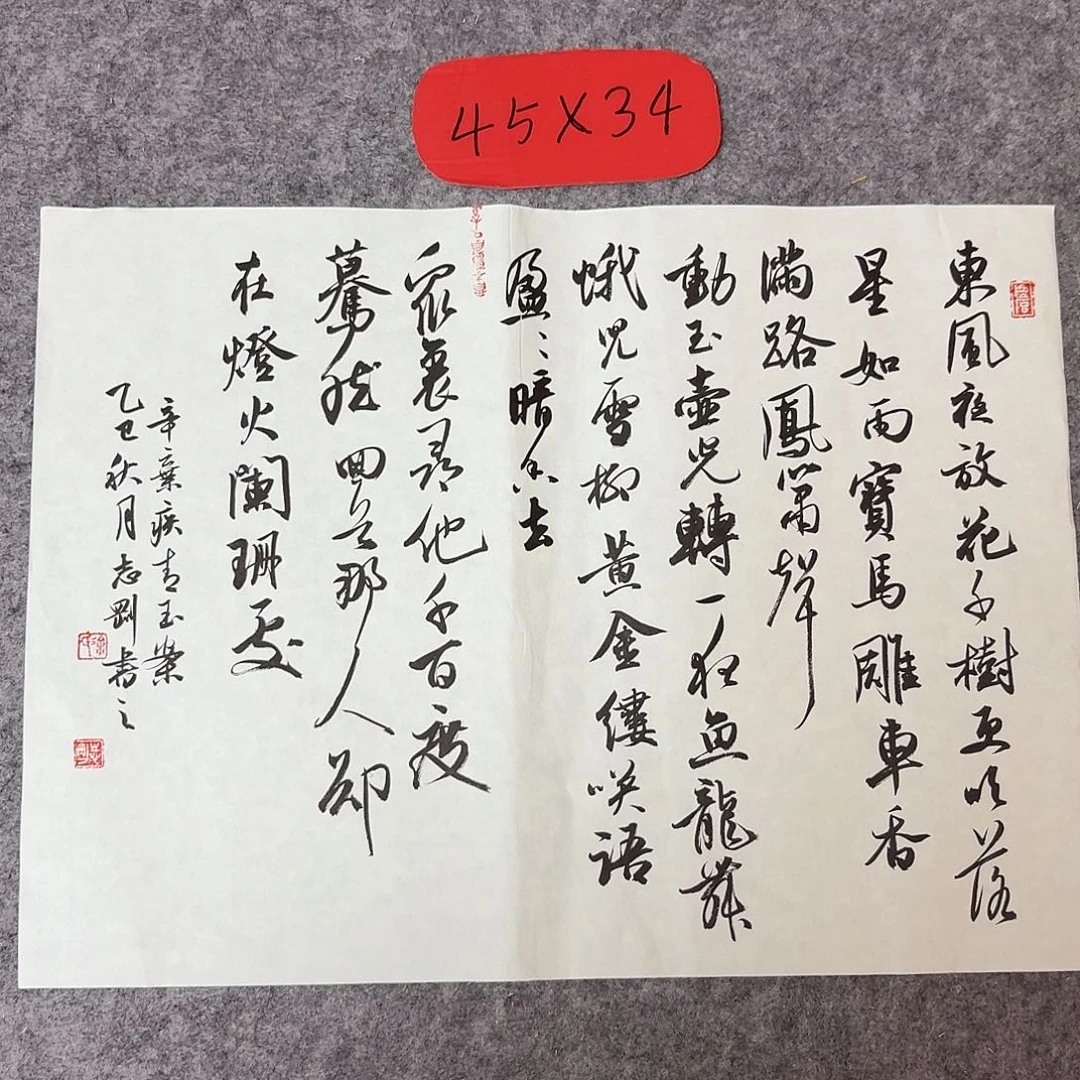 45X34
東風夜放花千樹更吹落
星如雨寶馬雕車香
滿路鳳簫聲
動玉壺光轉一夜魚龍舞
蛾兒雪柳黃金縷咲語
盈〻暗香去
眾裏尋他千百度
驀然回首那人却
在燈火闌珊處
辛棄疾青玉案
乙巳秋月志剛書之